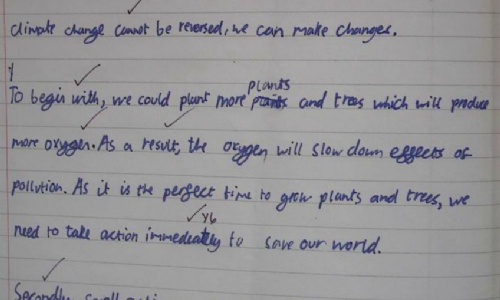 climate change cannot be reversed, we can make changes.
plants
To begin with, we could plant more and trees which will produce
more oxygen. As a result, the oxygen will slow down effects of
pollution. As it is the perfect time to grow plants and trees, we
need to take action immedeatly to save our world.
Secondly, small